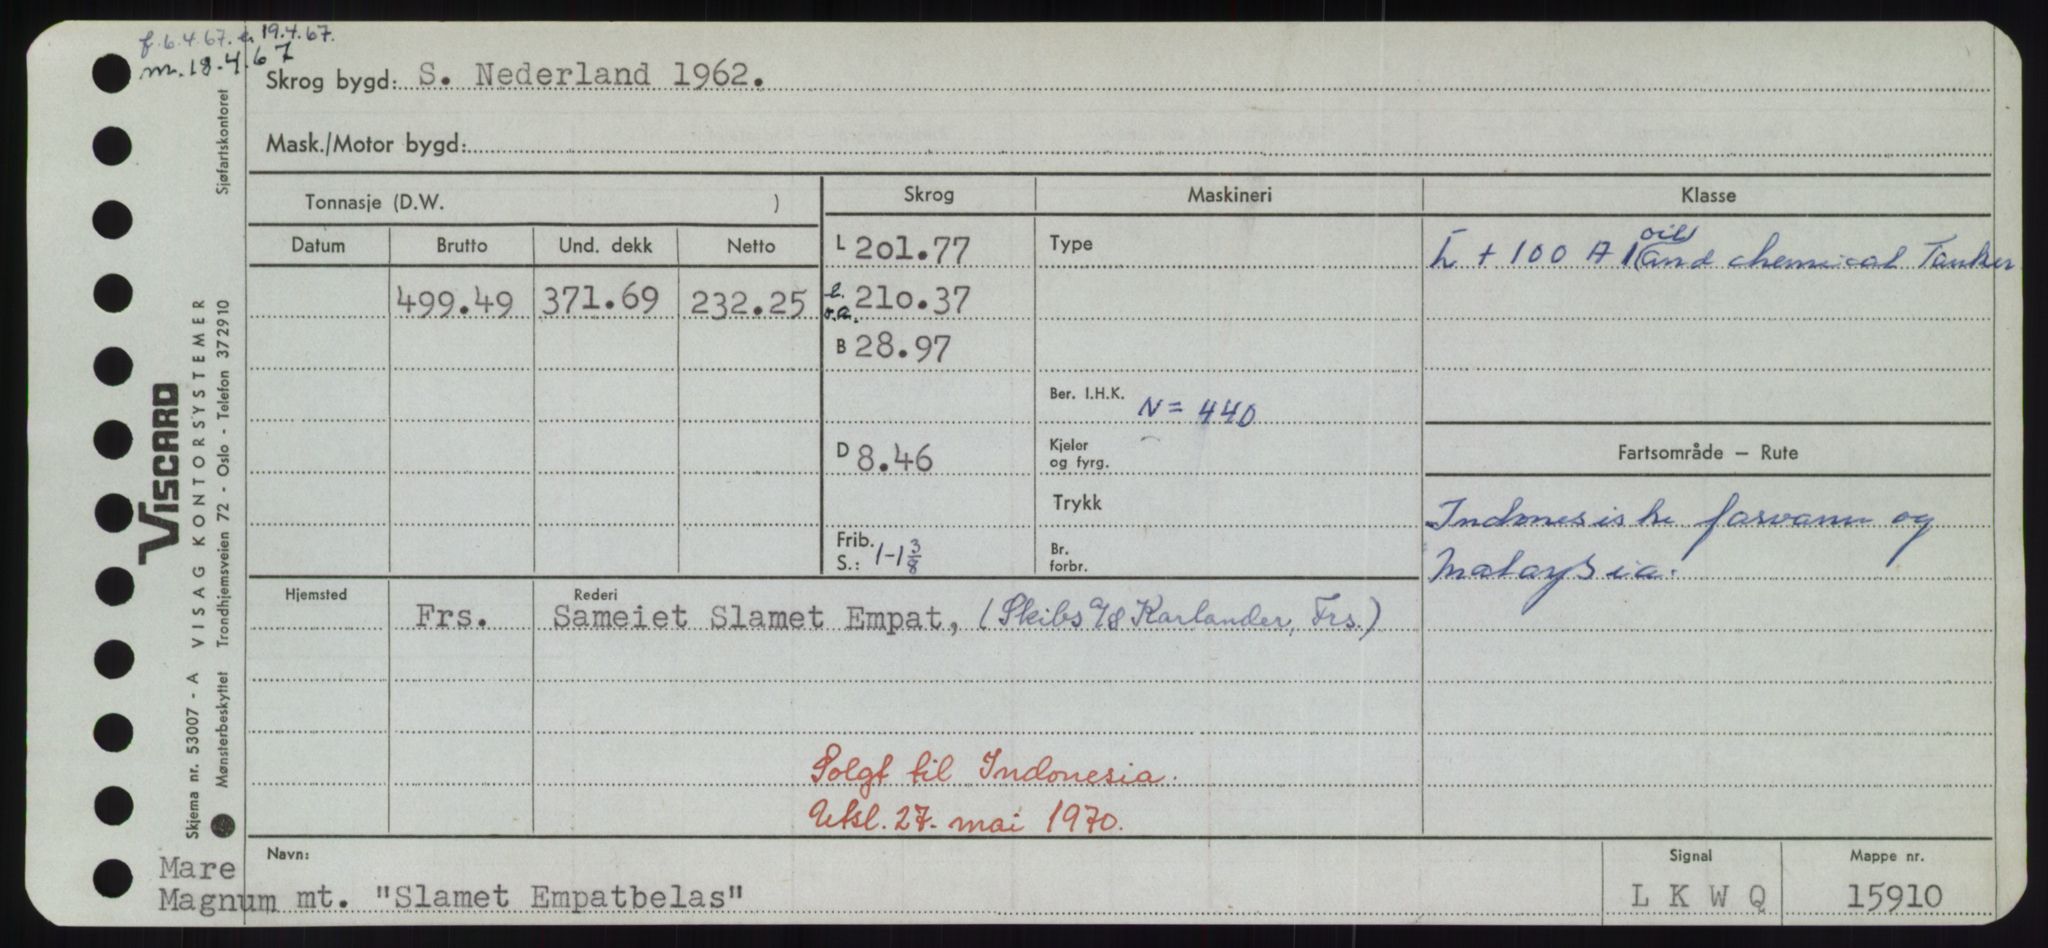 f. 6.4.67. a 19.4.67.
m. 18.4.67
Skrog bygd: S. Nederland 1962.
Mask./Motor bygd:
Tonnasje (D.W. )
Skrog
Maskineri
Klasse
Datum Brutto Und. dekk Netto
L 201.77
Type
+ 100 A 1 (oil and chemical Tanker
499.49 371.69 232.25
l. o.a. 210.37
B 28.97
Ber. I.H.K. N = 440
D 8.46
Kjeler
og fyrg.
Fartsområde — Rute
Trykk
Indonesiske farvann og
Malaysia.
Frib.
S.: 1-1 3/8
Br.
forbr.
Hjemsted
Rederi
Frs. Sameiet Slamet Empat, (Skibs a/s Karlander, Frs.)
Solgt til Indonesia.
Utsl. 27. mai 1970.
Navn:
Signal
Mappe nr.
Mare
Magnum mt. "Slamet Empatbelas"
L K W Q
15910
Sjøfartskontoret
VISCARD
VISAG KONTORSYSTEMER
Trondhjemsveien 72 - Oslo - Telefon 372910
Skjema nr. 53007 - A
Mønsterbeskyttet